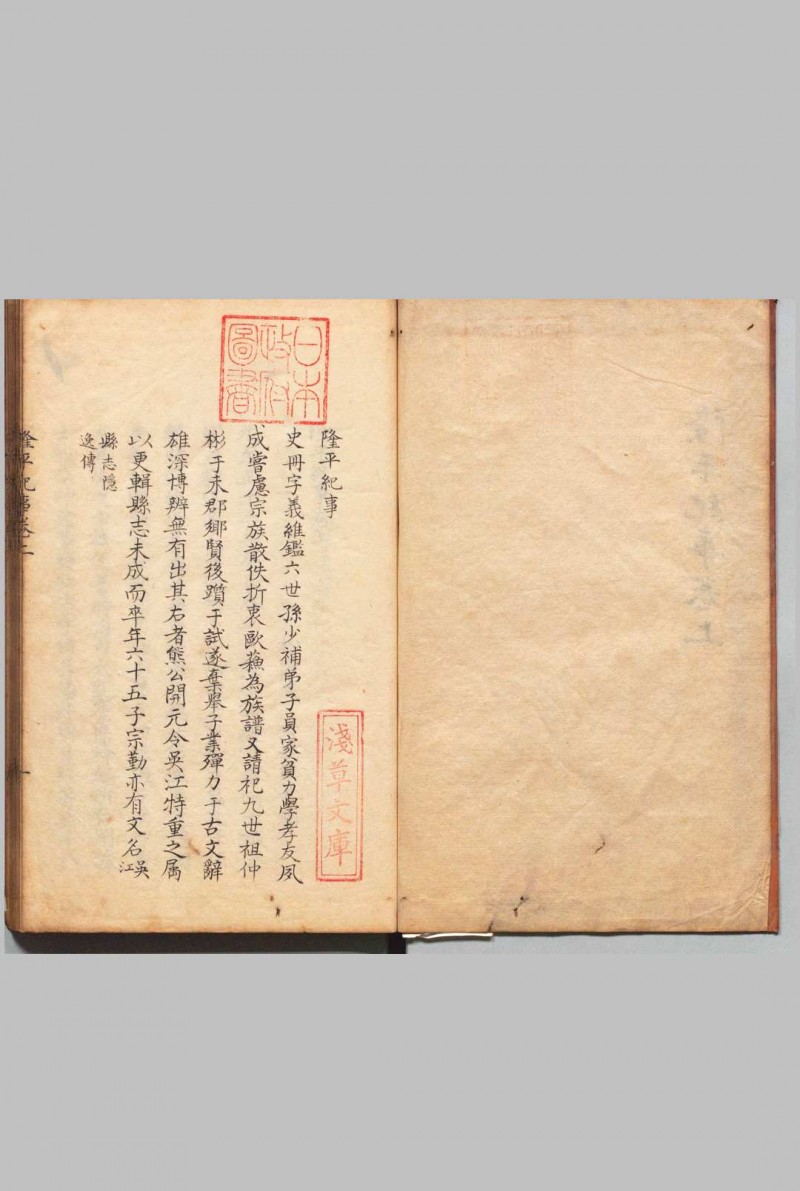 日本
政府
圖書
隆平紀事
淺草文庫
史冊字義維鑑六世孫少補弟子員家貧力學孝友夙
成嘗慮宗族散佚折衷歐蘓為族譜又請祀九世祖仲
彬于本郡鄉賢後躓于試遂棄舉子業彈力于古文辭
雄深博辨無有出其右者熊公開元令吳江特重之屬
以更輯縣志未成而卒年六十五子宗勤亦有文名吳
江
縣志隱
逸傳
隆平紀事卷上